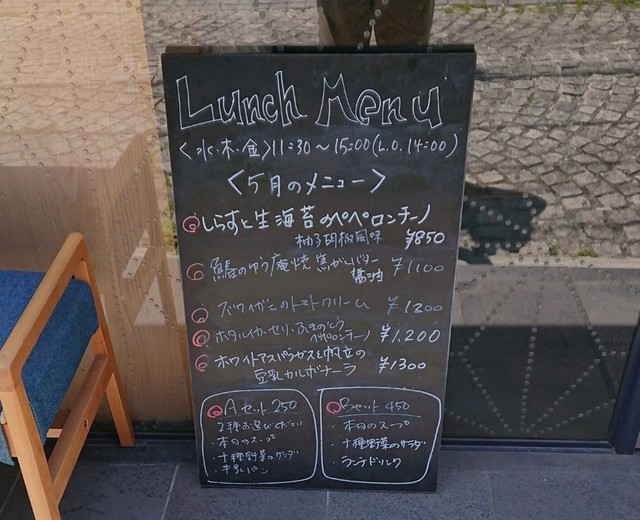 Lunch Menu
<水・木・金>11:30～15:00(L.O.14:00)
<5月のメニュー>
しらすと生海苔のペペロンチーノ
柚子胡椒風味 ¥850
鰆のゆう庵焼 焦がしバター
醤油 ¥1100
ズワイガニのトマトクリーム ¥1200
ホタルイカ、セリ、ふきのとう
ペペロンチーノ ¥1,200
ホワイトアスパラガスと帆立の
豆乳カルボナーラ ¥1300
Aセット 250
2種お選びください
・本日のスープ
・十種野菜のサラダ
・牛乳パン
Bセット 450
・本日のスープ
・十種野菜のサラダ
・ランチドリンク